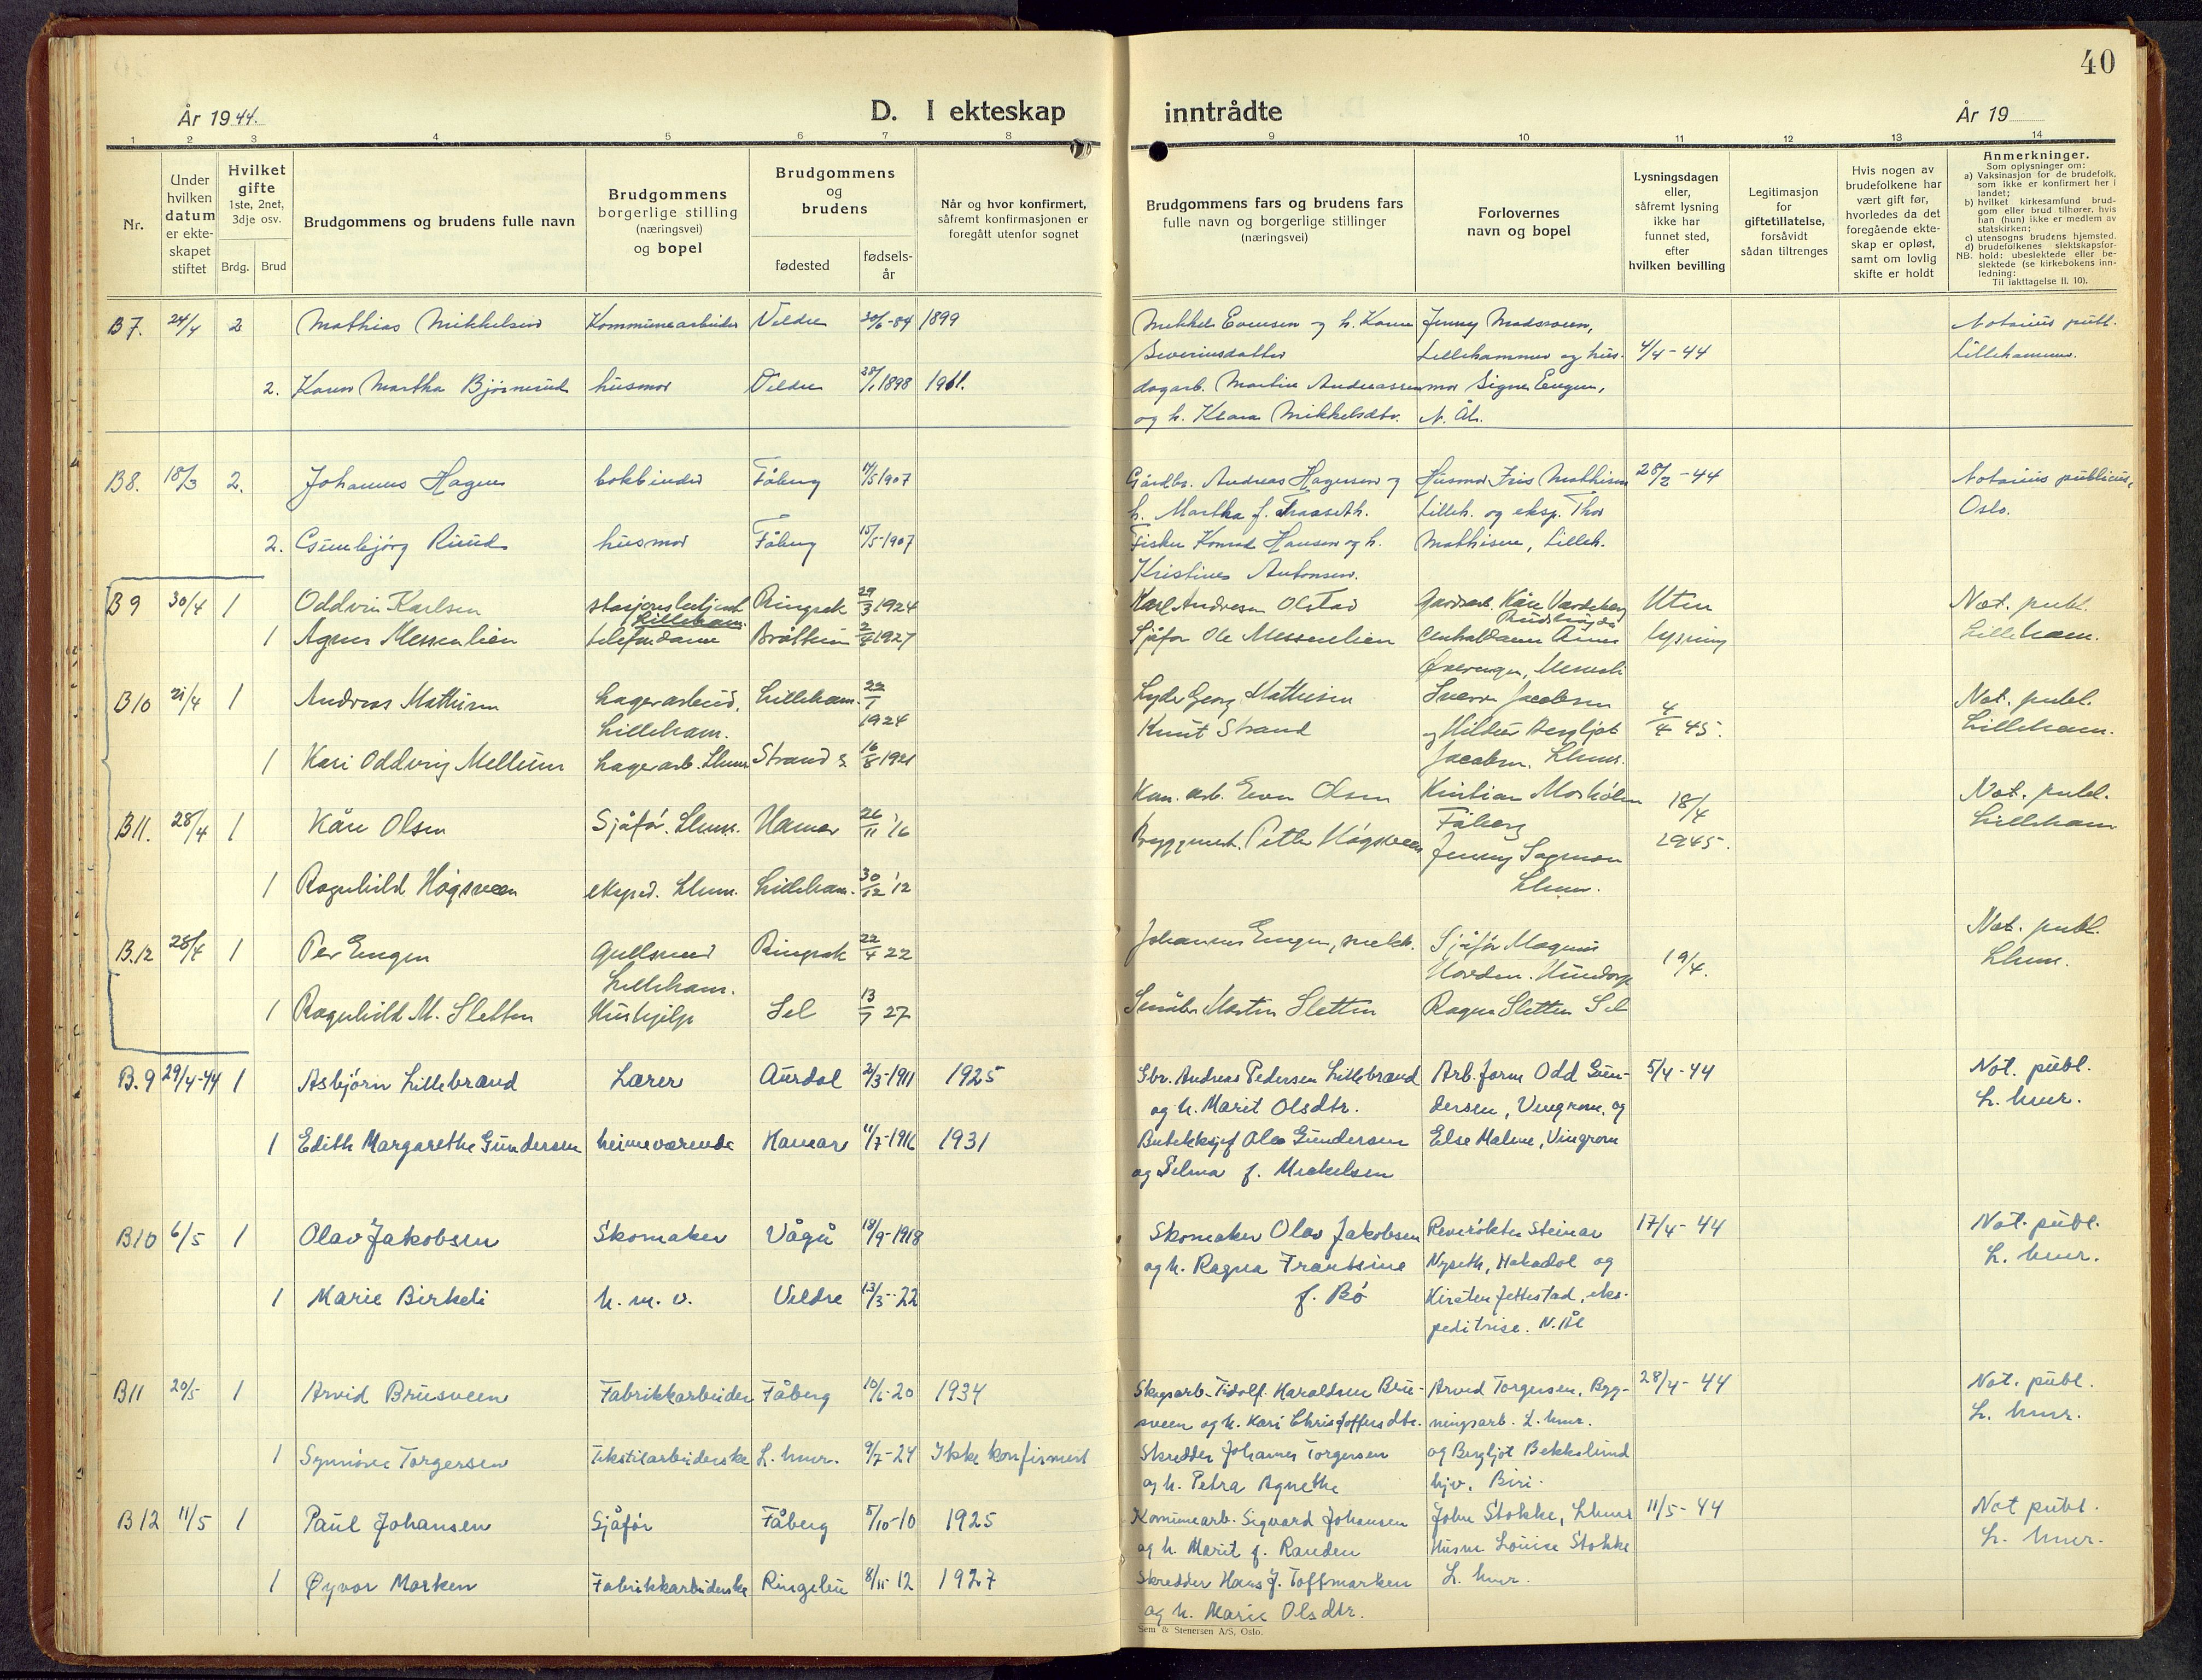 40
År 1944.
D. I ekteskap inntrådte
År 19
1 2 3 4 5 6 7 8 9 10 11 12 13 14
Nr.
Under hvilken datum er ekteskapet stiftet
Hvilket gifte 1ste, 2net, 3dje osv.
Brdg. Brud
Brudgommens og brudens fulle navn
Brudgommens borgerlige stilling (næringsvei) og bopel
Brudgommens og brudens
fødested
fødselsår
Når og hvor konfirmert, såfremt konfirmasjonen er foregått utenfor sognet
Brudgommens fars og brudens fars fulle navn og borgerlige stillinger (næringsvei)
Forlovernes navn og bopel
Lysningsdagen eller, såfremt lysning ikke har funnet sted, efter hvilken bevilling
Legitimasjon for giftetillatelse, forsåvidt sådan tiltrenges
Hvis nogen av brudefolkene har vært gift før, hvorledes da det foregående ekteskap er opløst, samt om lovlig skifte er holdt
Anmerkninger.
Som oplysninger om:
a) Vaksinasjon for de brudefolk, som ikke er konfirmert her i landet;
b) hvilket kirkesamfund brudgom eller brud tilhører, hvis han (hun) ikke er medlem av statskirken;
c) utensogns brudens hjemsted.
d) brudefolkenes slektskapsforhold: ubeslektede eller beslektede (se kirkebokens innledning:
NB. Til iakttagelse II. 10).
B 7. 24/4 2 Mathias Mikkelsen Kommunearbeider Veldre 30/6-84 1899
Jenny Madssen, Notarius publ.
Severinsdatter Lillehammer og hus- 4/4-44 Lillehammer.
2. Karen Martha Bjørnerud husmor Veldre 28/1 1898 1911.
dagarb. Martin Andreassen mor Signe Engen,
og h. Klara Mikkelsdtr. N. Ål.
B8. 18/3 2. Johannes Hagen bokbinder Fåberg 17/5 1907
Gårdbr. Andreas Hagensen og Husmor Iris Mathisen 28/2-44 Notarius publicus,
h. Martha f. Traaseth. Lilleh. og eksp. Thor Oslo.
2. Gunbjørg Ruud husmor Fåberg 15/5-1907
Fisker Konrad Hansen og h. Mathisen, Lilleh.
Kristine Antonsen.
B 9 30/4 1 Oddvin Karlsen stasjonsbetjent Ringsak 29/3 1924
Lilleham.
Karl Andresen Olstad Uten Not. publ.
1 Agnes Messenlien telefondame Brøttum 2/8 1927
Sjåfør Ole Messenlien lysning Lilleham.
B10 21/4 1 Andreas Mathisen Lagerarbeid. Lilleham. 22/1 1924
Lilleham.
Georg Mathisen Sverre Jacobsen 4/4 45. Not. publ.
Knut Strand og Hildur Bergljot Lilleham.
1 Kari Oddveig Mellum Lagerarb. Lhmr Strand 16/8 1921
Jacobsen, Lhmr.
B11. 28/4 1 Kåre Olsen Sjåfør. Lhmr. Hamar 26/11 '16
Olsen Kristian Mosholm 18/4 Not. publ.
Fåberg 2945. Lilleham
Byggmest. Petter Høgsveen Jenny
1 Ragnhild Høgsveen eksped. Lhmr. Lilleham. 30/12 '12
Lhmr.
B.12 28/4 1 Per Engen Gullsmed Ringsak 22/4 22
Lilleham.
Johannes Engen, snekk. Sjåfør Magnus 19/4. Not. publ.
Hundorp Lhmr.
1 Ragnhild M. Sletten Hushjelp Sel 13/7 27
Småbr. Martin Sletten Ragna Sletten Sel
B.9 29/4-44 1 Asbjørn Lillebrand Lærer Aurdal 2/3-1911 1925
Gbr. Andreas Pedersen Lillebrand Arb.form. Odd Gun- 5/4-44 Not. publ.
og h. Marit Olsdtr. dersen, Vingrom, og L. hmr.
1 Edith Margarethe Gundersen heimeværende Hamar 11/7-1916 1931
Butikksjef Olav Gundersen Else Malme, Vingrom
og Selma f. Mickelsen
B10 6/5 1 Olav Jakobsen Skomaker Vågå 18/9-1918
Skomaker Olav Jakobsen Reverøkter Steinar 17/4-44 Not. publ.
og h. Ragna Frantsine Nyseth, Hakadal og L. hmr.
1 Marie Birkeli h. m. v. Veldre 13/3-22
f. Bø Kirsten Jettestad, eks-
peditrise. N.Ål
B11 20/5 1 Arvid Brusveen Fabrikkarbeider Fåberg 10/6-20 1934
Skogsarb. Tidolf Haraldsen Bru- Arvid Torgersen, Byg- 28/4-44 Not. publ.
sveen og h. Kari Christoffersdtr. ningsarb. L. hmr. L. hmr.
1 Synnøve Torgersen Tekstilarbeiderske L. hmr. 9/7-24 Ikke konfirmert
Skredder Johannes Torgersen og Bergljot Bekkelund
og h. Petra Agnethe hjv. Biri.
B12 11/5 1 Paul Johansen Sjåfør Fåberg 5/10-10 1925
Komunearb. Sigvard Johansen John Stokke, Lhmr 11/5-44 Not publ.
og h. Marit f. Randen Husm Louise Stokke L. hmr.
1 Øyvor Marken Fabrikkarbeiderske Ringebu 8/11 12 1927
Skredder Hans J. Toftmarken L. hmr.
og h. Marie Olsdtr.
Sem & Stenersen A/S, Oslo.